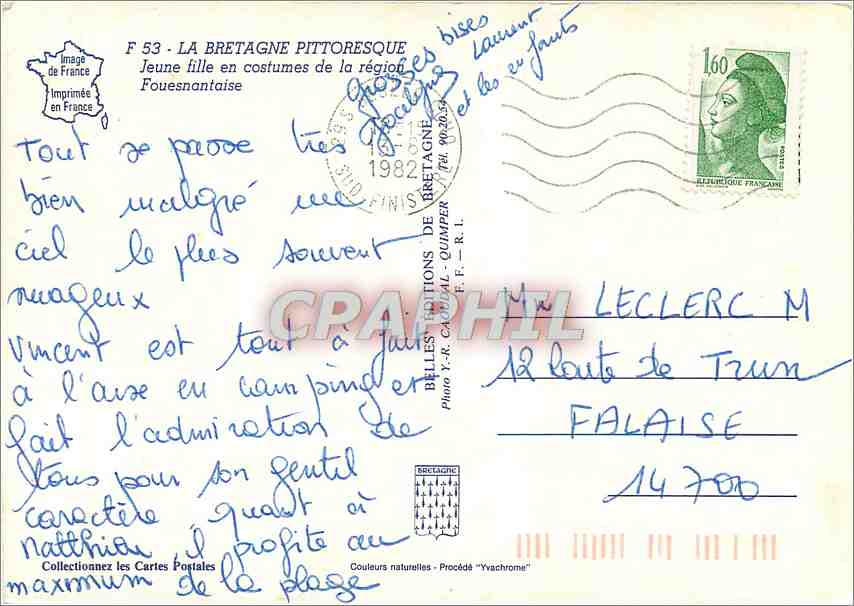 F 53 - LA BRETAGNE PITTORESQUE
Jeune fille en costumes de la région
Fouesnantaise
Image
de France
Imprimée
en France
Tout se passe très
bien malgré un
ciel le plus souvent
nuageux
Vincent est tout à fait
à l'aise en camping et
fait l'admiration de
tous pour son gentil
caractère, quant à
Matthieu, il profite au
maximum de la plage
Grosses bises
Jocelyne Laurent
et les enfants
1982
SUD FINIST
1,60
POSTES
REPUBLIQUE FRANÇAISE
BELLES EDITIONS DE BRETAGNE
Photo Y.-R. CAOUDAL - QUIMPER Tél. 90.20.54
F. F. - R. I.
CPRAPHIL
LECLERC M
12 Route de Trun
FALAISE
14700
BRETAGNE
Collectionnez les Cartes Postales
Couleurs naturelles - Procédé "Yvachrome"